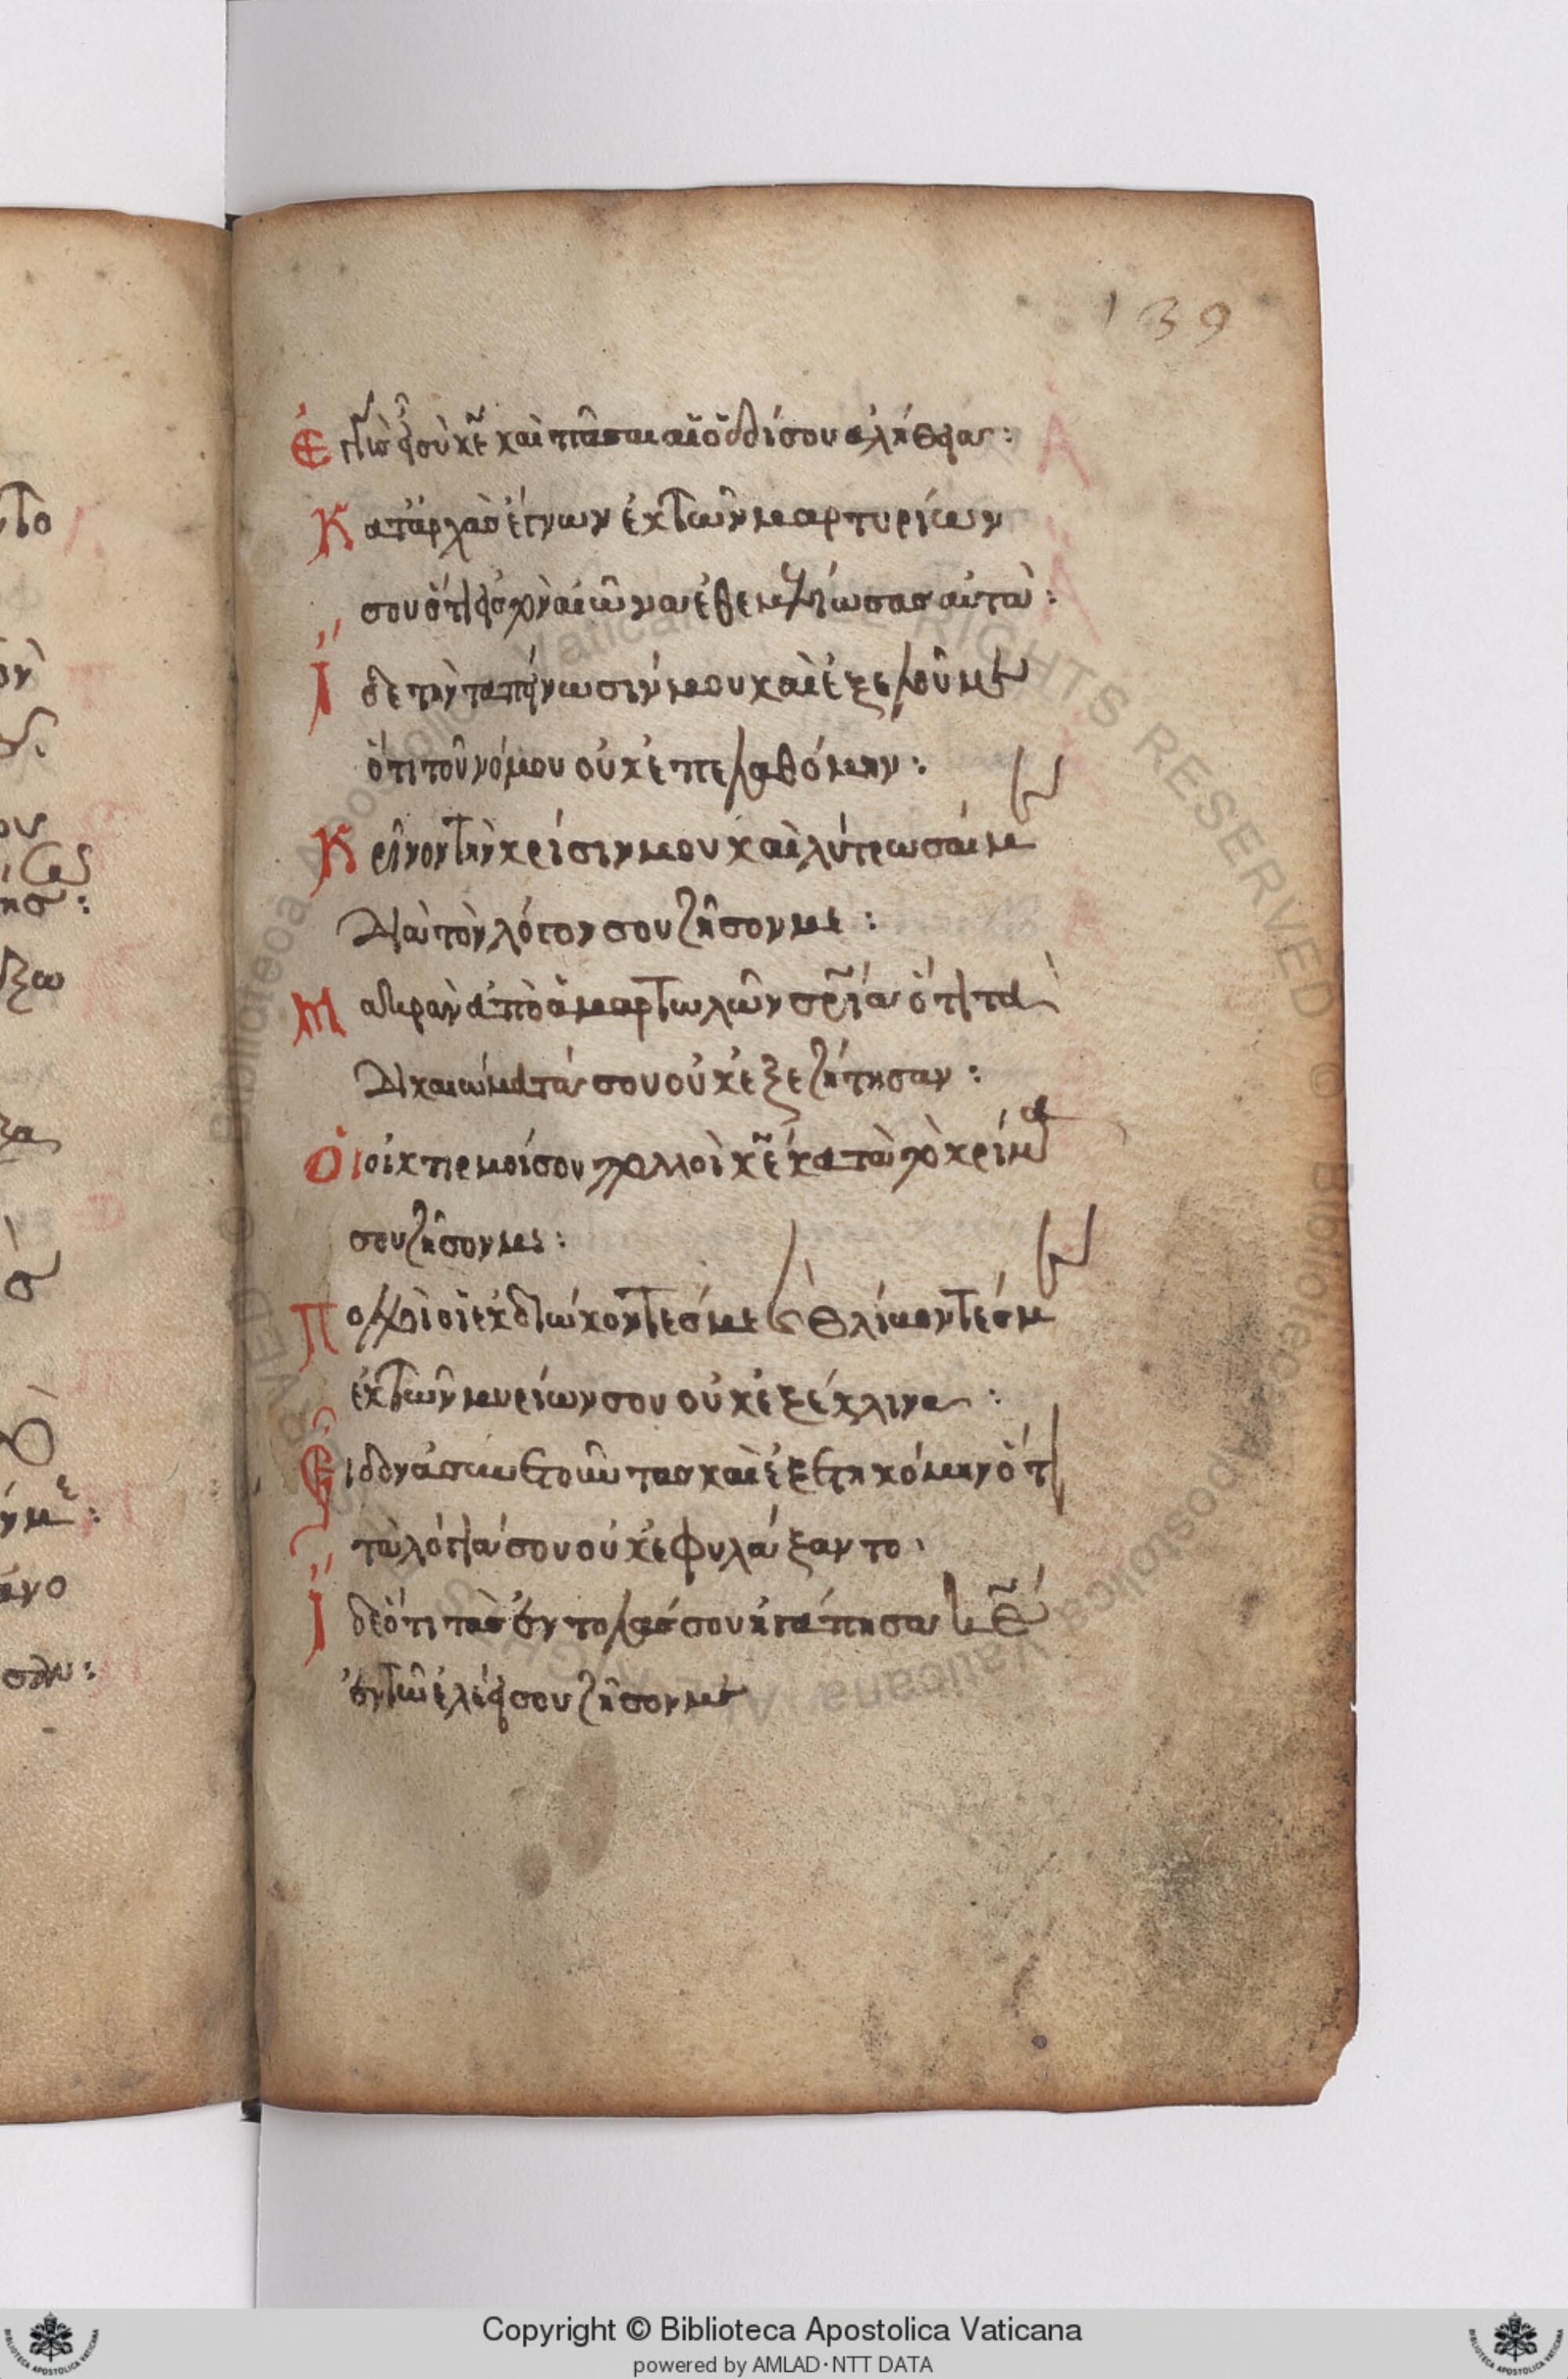 139
Ἐγγὺς εἶ σὺ κε καὶ πᾶσαι αἱ ὁδοί σου ἀλήθεια:
Κατ ἀρχὰς ἔγνων ἐκ τῶν μαρτυρίων
σου ὅτι εἰς τὸν αἰῶνα ἐθεμελίωσας αὐτά:
Ἴδε τὴν ταπείνωσίν μου καὶ ἐξελοῦ με
ὅτι τοῦ νόμου σου οὐκ ἐπελαθόμην:
Κρῖνον τὴν κρίσιν μου καὶ λύτρωσαί με
διὰ τὸν λόγον σου ζῆσόν με:
Μακρὰν ἀπὸ ἁμαρτωλῶν σρία ὅτι τὰ
δικαιώματά σου οὐκ ἐξεζήτησαν:
Οἱ οἰκτιρμοί σου πολλοὶ κε κατὰ τὸ κρίμα
σου ζῆσόν με:
Πολλοὶ οἱ ἐκδιώκοντές με καὶ θλίβοντές με
ἐκ τῶν μαρτυρίων σου οὐκ ἐξέκλινα:
Εἶδον ἀσυνετοῦντας καὶ ἐξετηκόμην ὅτι
τὰ λόγιά σου οὐκ ἐφυλάξαντο.
Ἴδε ὅτι τὰς ἐντολάς σου ἠγάπησα κε
ἐν τῷ ἐλέει σου ζῆσόν με
Copyright © Biblioteca Apostolica Vaticana
powered by AMLAD·NTT DATA